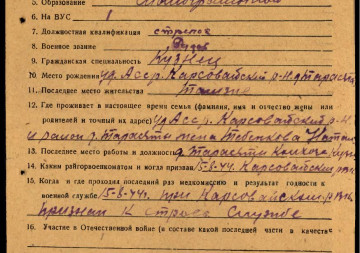 5. Образование
6. На ВУС 1
7. Должностная квалификация стрелок
8. Военное звание Рядов
9. Гражданская специальность Кузнец
10. Место рождения уд. Асср. Карсовайский р-н д. Тарасяты
11. Последнее место жительства
12. Где проживает в настоящее время семья (фамилия, имя и отчество жены или
родителей и точный их адрес) уд Асср Карсовайский р-н
д. Тарасяти жена
13. Последнее место работы и должность д. Тарасяти Колхоз
14. Каким райгорвоенкоматом и когда призван 15-8-44г. Карсовайским
15. Когда и где проходил последний раз медкомиссию и результат годности к
военной службе 15-8-44г. при Карсовайском
признан к строев службе
16. Участие в Отечественной войне (в составе какой последней части и в качестве